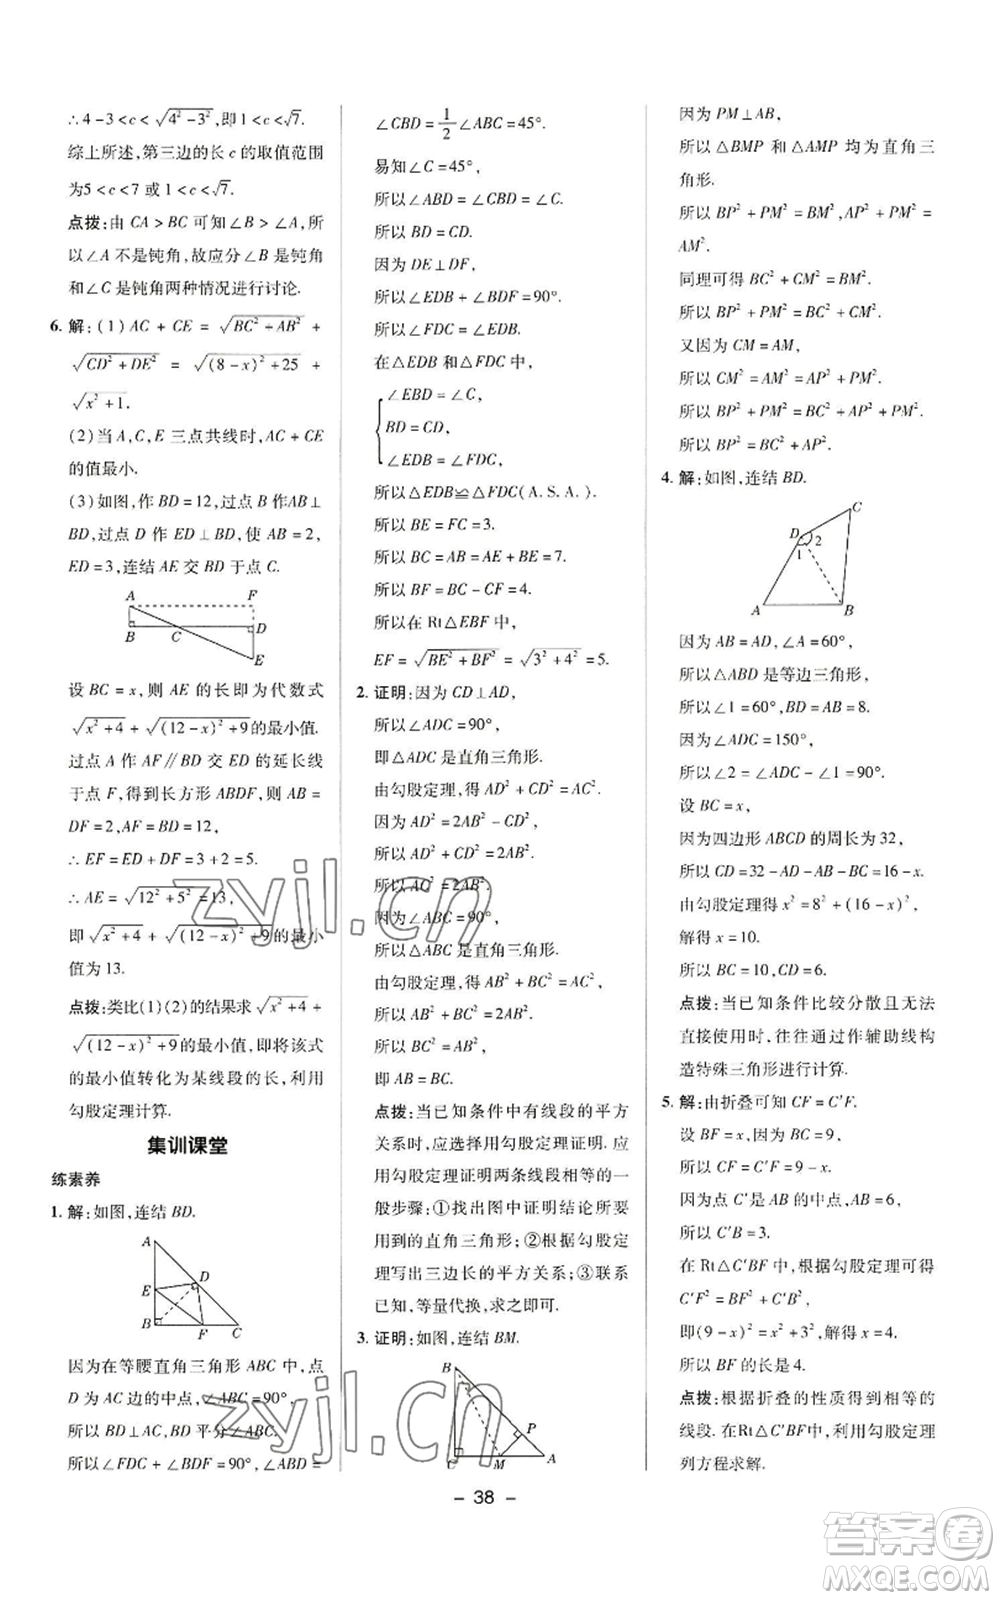 ∴4-3<c<√(4²-3²),即1<c<√7.
综上所述,第三边的长c的取值范围
为5<c<7或1<c<√7.
点拨:由CA>BC可知∠B>∠A,所
以∠A不是钝角,故应分∠B是钝角
和∠C是钝角两种情况进行讨论.
6. 解:(1)AC+CE=√(BC²+AB²)+
√(CD²+DE²)=√((8-x)²+25)+
√(x²+1).
(2)当A,C,E三点共线时,AC+CE
的值最小.
(3)如图,作BD=12,过点B作AB⊥
BD,过点D作ED⊥BD,使AB=2,
ED=3,连结AE交BD于点C.
A F
B C D
E
设BC=x,则AE的长即为代数式
√(x²+4)+√((12-x)²+9)的最小值.
过点A作AF∥BD交ED的延长线
于点F,得到长方形ABDF,则AB=
DF=2,AF=BD=12,
∴EF=ED+DF=3+2=5.
∴AE=√(12²+5²)=13,
即√(x²+4)+√((12-x)²+9)的最小
值为13.
点拨:类比(1)(2)的结果求√(x²+4)+
√((12-x)²+9)的最小值,即将该式
的最小值转化为某线段的长,利用
勾股定理计算.
集训课堂
练素养
1. 解:如图,连结BD.
A
E D
B F C
因为在等腰直角三角形ABC中,点
D为AC边的中点,∠ABC=90°,
所以BD⊥AC,BD平分∠ABC.
所以∠FDC+∠BDF=90°,∠ABD=
∠CBD=1/2∠ABC=45°.
易知∠C=45°,
所以∠ABD=∠CBD=∠C.
所以BD=CD.
因为DE⊥DF,
所以∠EDB+∠BDF=90°.
所以∠FDC=∠EDB.
在△EDB和△FDC中,
∠EBD=∠C,
BD=CD,
∠EDB=∠FDC,
所以△EDB≌△FDC(A.S.A.).
所以BE=FC=3.
所以BC=AB=AE+BE=7.
所以BF=BC-CF=4.
所以在Rt△EBF中,
EF=√(BE²+BF²)=√(3²+4²)=5.
2. 证明:因为CD⊥AD,
所以∠ADC=90°,
即△ADC是直角三角形.
由勾股定理,得AD²+CD²=AC².
因为AD²=2AB²-CD²,
所以AD²+CD²=2AB².
所以AC²=2AB².
因为∠ABC=90°,
所以△ABC是直角三角形.
由勾股定理,得AB²+BC²=AC².
所以AB²+BC²=2AB².
所以BC²=AB²,
即AB=BC.
点拨:当已知条件中有线段的平方
关系时,应选择用勾股定理证明.应
用勾股定理证明两条线段相等的一
般步骤:①找出图中证明结论所要
用到的直角三角形;②根据勾股定
理写出三边长的平方关系;③联系
已知,等量代换,求之即可.
3. 证明:如图,连结BM.
B
P
C M A
因为PM⊥AB,
所以△BMP和△AMP均为直角三
角形.
所以BP²+PM²=BM²,AP²+PM²=
AM².
同理可得BC²+CM²=BM².
所以BP²+PM²=BC²+CM².
又因为CM=AM,
所以CM²=AM²=AP²+PM².
所以BP²+PM²=BC²+AP²+PM².
所以BP²=BC²+AP².
4. 解:如图,连结BD.
C
D 2
1
A B
因为AB=AD,∠A=60°,
所以△ABD是等边三角形.
所以∠1=60°,BD=AB=8.
因为∠ADC=150°,
所以∠2=∠ADC-∠1=90°.
设BC=x,
因为四边形ABCD的周长为32,
所以CD=32-AD-AB-BC=16-x.
由勾股定理得x²=8²+(16-x)²,
解得x=10.
所以BC=10,CD=6.
点拨:当已知条件比较分散且无法
直接使用时,往往通过作辅助线构
造特殊三角形进行计算.
5. 解:由折叠可知CF=C′F.
设BF=x,因为BC=9,
所以CF=C′F=9-x.
因为点C′是AB的中点,AB=6,
所以C′B=3.
在Rt△C′BF中,根据勾股定理可得
C′F²=BF²+C′B²,
即(9-x)²=x²+3²,解得x=4.
所以BF的长是4.
点拨:根据折叠的性质得到相等的
线段.在Rt△C′BF中,利用勾股定理
列方程求解.
- 38 -
zyjl.cn
zyjl.cn
答案卷
MXQE.COM